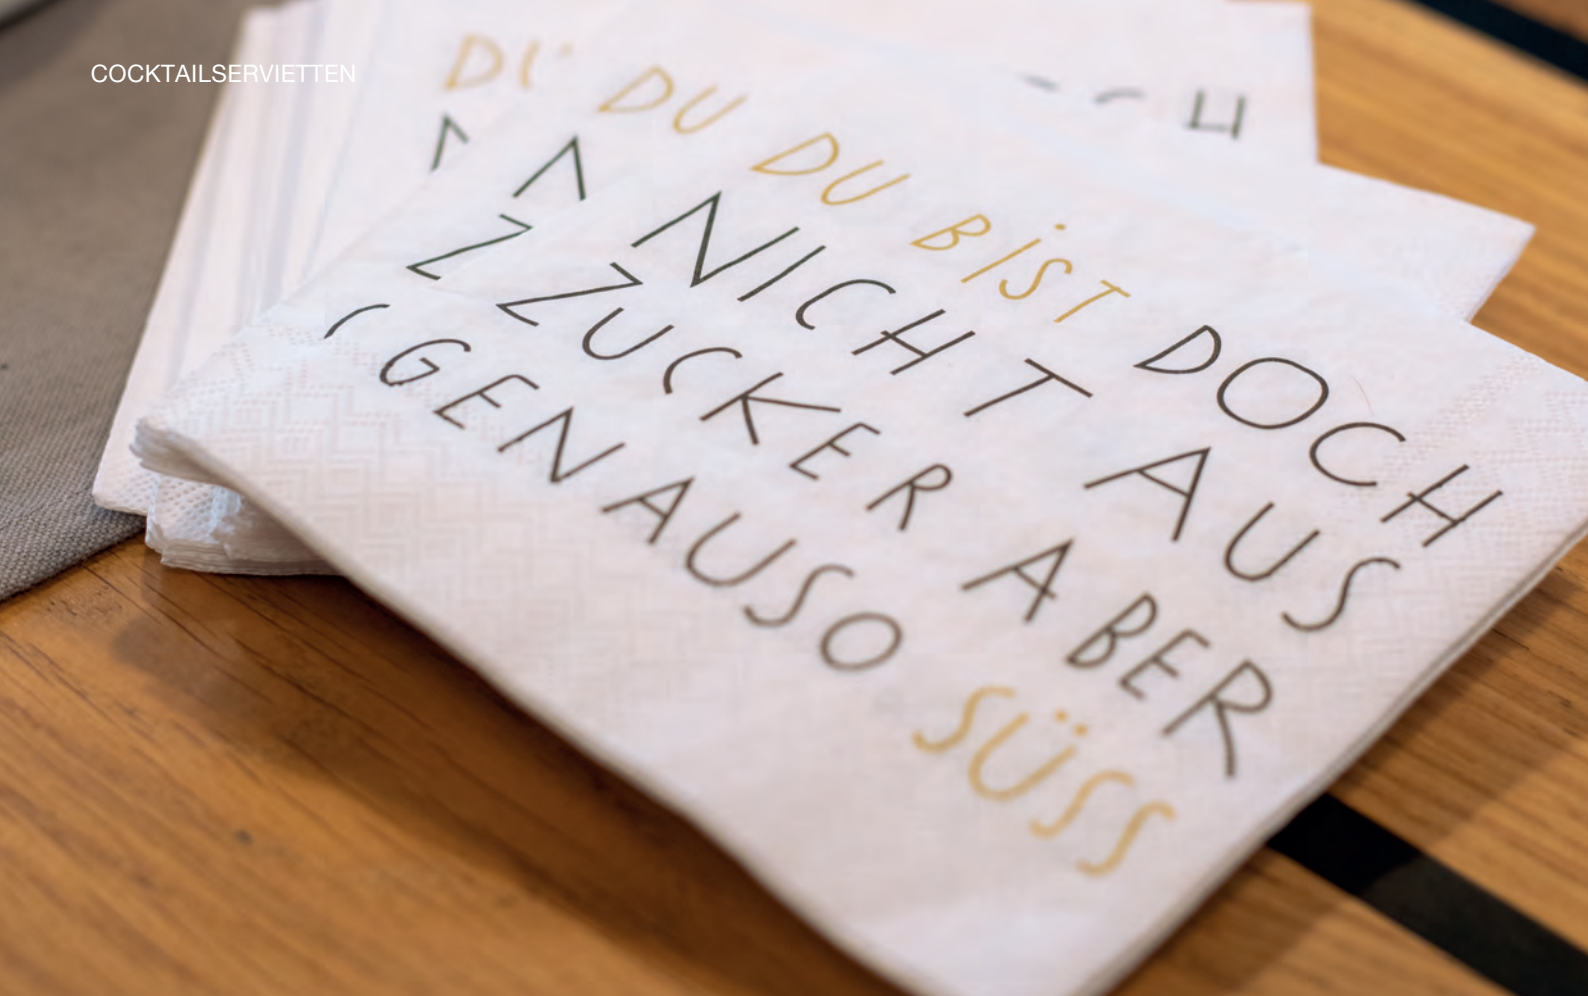 COCKTAILSERVIETTEN
DU
DU BIST DOCH
NICHT AUS
ZUCKER ABER
GENAUSO SÜSS